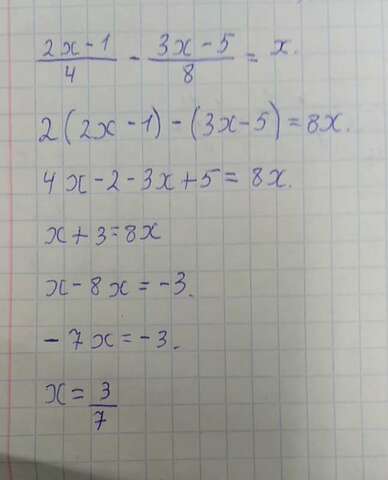 (2x-1)/4 - (3x-5)/8 = x.
2(2x-1)-(3x-5)=8x.
4x-2-3x+5=8x.
x+3=8x
x-8x=-3.
-7x=-3.
x=3/7